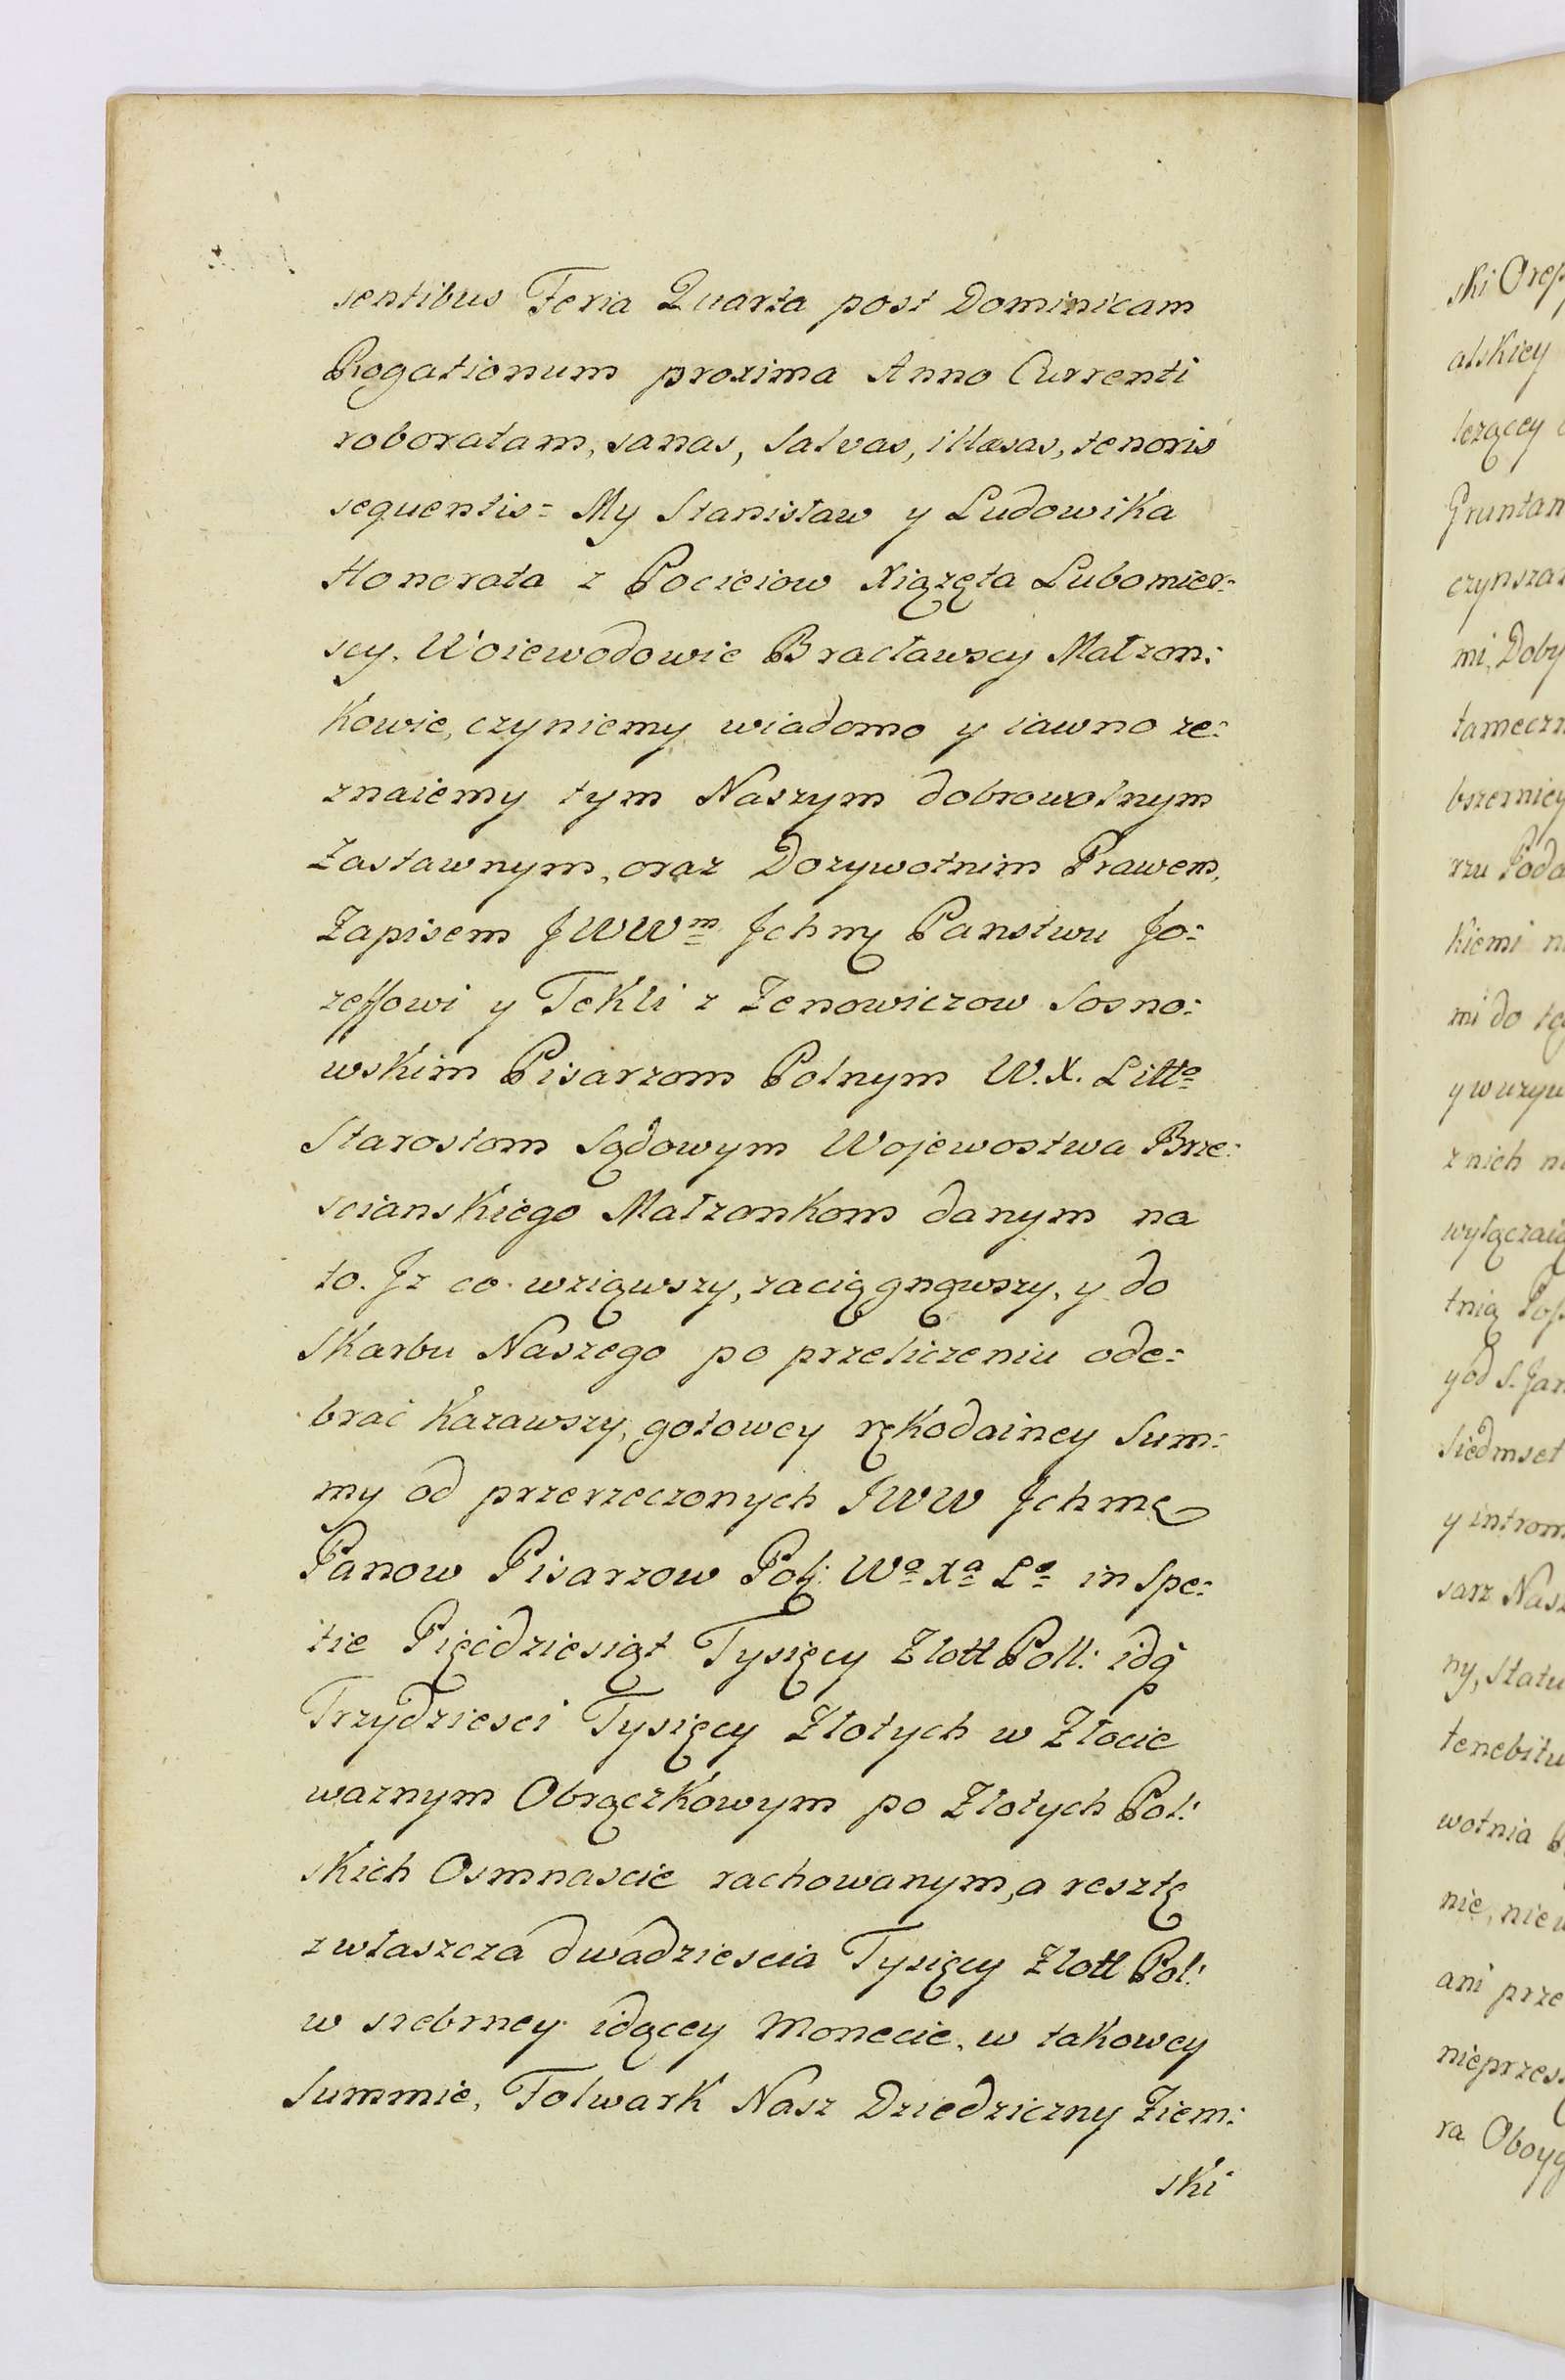 sentibus Feria Quarta post Dominicam
Rogationum proxima Anno Currenti
roboratam, sanas, salvas, illæsas, tenoris
sequentis = My Stanisław y Ludowika
Honorata z Pocieiow Xiążęta Lubomier=
scy, Woiewodowie Bracławscy Małżon:
kowie, czyniemy wiadomo y iawno ze=
znaiemy tym Naszym dobrowolnym
Zastawnym, oraz Dozywotnim Prawem,
Zapisem JWWm Jchmę Panstwu Jo=
zeffowi y Tekli z Zenowiczow Sosno=
wskim Pisarzom Polnym W. X. Litto
Starostom Sądowym Wojewostwa Brze=
scianskiego Małzonkom danym na
to. Jz co wziąwszy, zaciągnąwszy, y do
Skarbu Naszego po przeliczeniu ode=
brać kazawszy, gotowey rękodainey Sum=
my od przerzeczonych JWW Jchmę
Panow Pisarzow Pol: Wo Xa Lo in Spe=
tie Pięćdziesiąt Tysięcy Zlott Poll: idą
Trzydziesci Tysięcy Złotych w Złocie
waznym Obrączkowym po Złotych Pol:
skich Osmnascie rachowanym, a resztę
zwłaszcza dwadziescia Tysięcy Zlott Pol:
w srebrney idącey Monecie, w takowey
Summie, Folwark Nasz Dziedziczny Ziem:
ski
ski Orep
alskiey
lezącey
Gruntam
czynsza
mi, Doby
tameczn
bszerniey
rzu Poda
kiemi n
mi do tą
y w uzyw
z nich n
wyłączaią
tnią Pos
y od S. Jan
Siedmset
y introm
sarz Nasz
ny, Statu
tenebitu
wotnia
nie, niew
ani prze
nieprzes
ra Oboyg